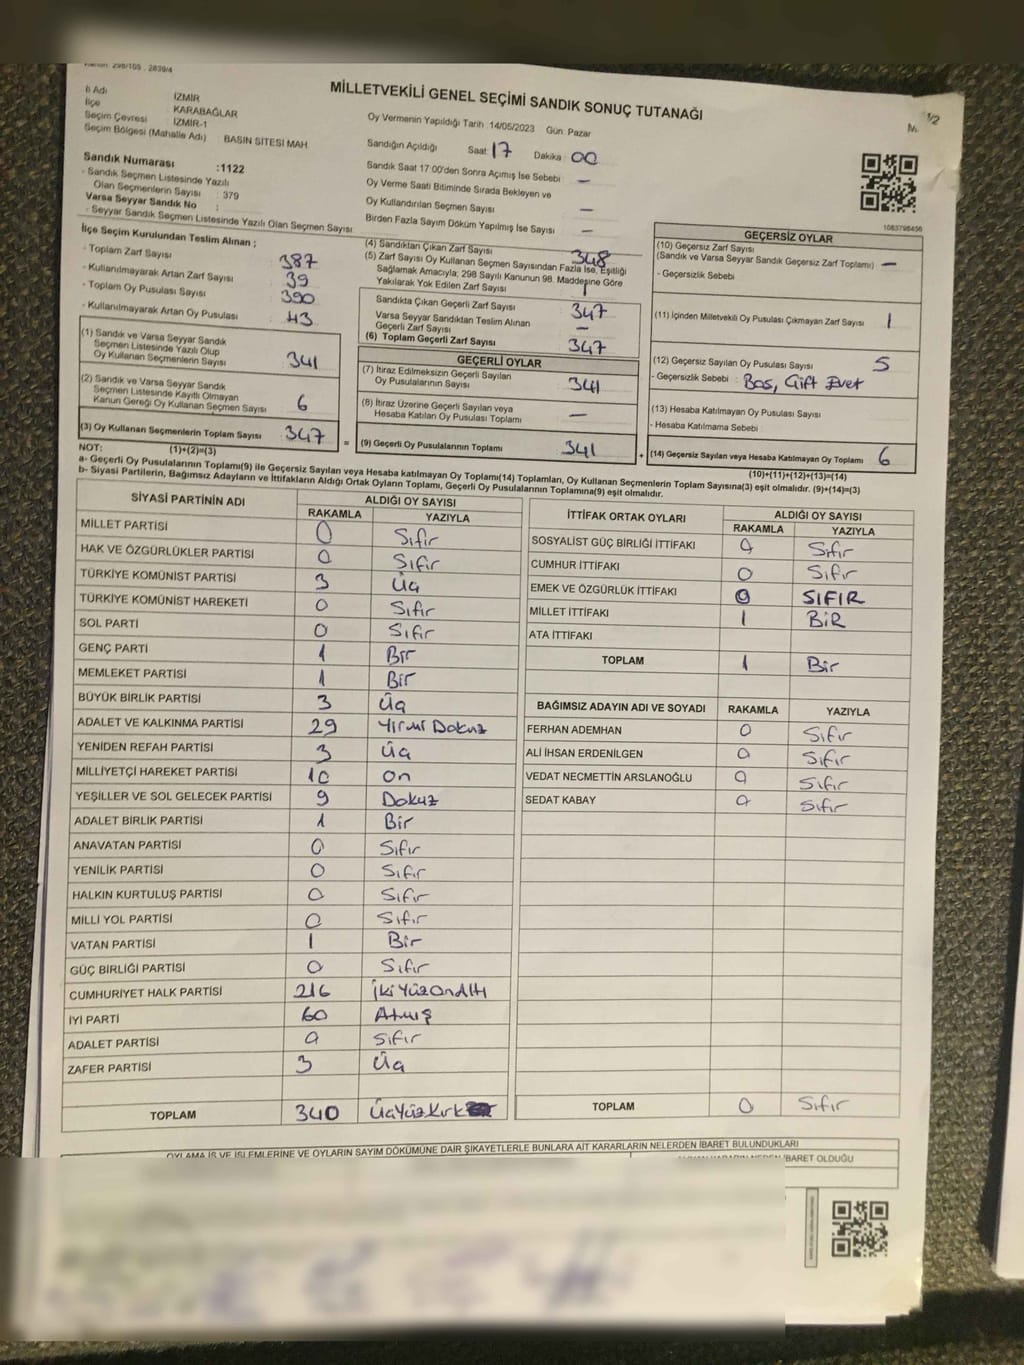 Kanun: 298/105 . 2839/4
1/2
MİLLETVEKİLİ GENEL SEÇİMİ SANDIK SONUÇ TUTANAĞI
İl Adı İZMİR
İlçe KARABAĞLAR
Seçim Çevresi İZMİR-1
Seçim Bölgesi (Mahalle Adı) BASIN SİTESİ MAH.
Sandık Numarası :1122
- Sandık Seçmen Listesinde Yazılı
Olan Seçmenlerin Sayısı : 379
Varsa Seyyar Sandık No :
- Seyyar Sandık Seçmen Listesinde Yazılı Olan Seçmen Sayısı
Oy Vermenin Yapıldığı Tarih :14/05/2023 Gün: Pazar
Sandığın Açıldığı Saat: 17 Dakika: 00
Sandık Saat 17:00'den Sonra Açımış İse Sebebi : -
Oy Verme Saati Bitiminde Sırada Bekleyen ve
Oy Kullandırılan Seçmen Sayısı : -
Birden Fazla Sayım Döküm Yapılmış İse Sayısı : -
1083798456
İlçe Seçim Kurulundan Teslim Alınan ;
- Toplam Zarf Sayısı : 387
- Kullanılmayarak Artan Zarf Sayısı : 39
- Toplam Oy Pusulası Sayısı : 390
- Kullanılmayarak Artan Oy Pusulası : 43
(1) Sandık ve Varsa Seyyar Sandık
Seçmen Listesinde Yazılı Olup
Oy Kullanan Seçmenlerin Sayısı : 341
(2) Sandık ve Varsa Seyyar Sandık
Seçmen Listesinde Kayıtlı Olmayan
Kanun Gereği Oy Kullanan Seçmen Sayısı : 6
(3) Oy Kullanan Seçmenlerin Toplam Sayısı : 347
(1)+(2)=(3)
(4) Sandıktan Çıkan Zarf Sayısı 348
(5) Zarf Sayısı Oy Kullanan Seçmen Sayısından Fazla İse, Eşitliği
Sağlamak Amacıyla; 298 Sayılı Kanunun 98. Maddesine Göre
Yakılarak Yok Edilen Zarf Sayısı : 1
Sandıkta Çıkan Geçerli Zarf Sayısı : 347
Varsa Seyyar Sandıktan Teslim Alınan
Geçerli Zarf Sayısı : -
(6) Toplam Geçerli Zarf Sayısı : 347
GEÇERLİ OYLAR
(7) İtiraz Edilmeksizin Geçerli Sayılan
Oy Pusulalarının Sayısı : 341
(8) İtiraz Üzerine Geçerli Sayılan veya
Hesaba Katılan Oy Pusulası Toplamı : -
= (9) Geçerli Oy Pusulalarının Toplamı : 341
GEÇERSİZ OYLAR
(10) Geçersiz Zarf Sayısı
(Sandık ve Varsa Seyyar Sandık Geçersiz Zarf Toplamı) : -
- Geçersizlik Sebebi :
(11) İçinden Milletvekili Oy Pusulası Çıkmayan Zarf Sayısı : 1
(12) Geçersiz Sayılan Oy Pusulası Sayısı : 5
- Geçersizlik Sebebi : Boş, Çift Evet
(13) Hesaba Katılmayan Oy Pusulası Sayısı :
- Hesaba Katılmama Sebebi :
+ (14) Geçersiz Sayılan veya Hesaba Katılmayan Oy Toplamı : 6
(10)+(11)+(12)+(13)=(14)
NOT:
a- Geçerli Oy Pusulalarının Toplamı(9) ile Geçersiz Sayılan veya Hesaba katılmayan Oy Toplamı(14) Toplamları, Oy Kullanan Seçmenlerin Toplam Sayısına(3) eşit olmalıdır. (9)+(14)=(3)
b- Siyasi Partilerin, Bağımsız Adayların ve İttifakların Aldığı Ortak Oyların Toplamı, Geçerli Oy Pusulalarının Toplamına(9) eşit olmalıdır.
SİYASİ PARTİNİN ADI ALDIĞI OY SAYISI
RAKAMLA YAZIYLA
MİLLET PARTİSİ 0 Sıfır
HAK VE ÖZGÜRLÜKLER PARTİSİ 0 Sıfır
TÜRKİYE KOMÜNİST PARTİSİ 3 Üç
TÜRKİYE KOMÜNİST HAREKETİ 0 Sıfır
SOL PARTİ 0 Sıfır
GENÇ PARTİ 1 Bir
MEMLEKET PARTİSİ 1 Bir
BÜYÜK BİRLİK PARTİSİ 3 Üç
ADALET VE KALKINMA PARTİSİ 29 Yirmi Dokuz
YENİDEN REFAH PARTİSİ 3 Üç
MİLLİYETÇİ HAREKET PARTİSİ 10 On
YEŞİLLER VE SOL GELECEK PARTİSİ 9 Dokuz
ADALET BİRLİK PARTİSİ 1 Bir
ANAVATAN PARTİSİ 0 Sıfır
YENİLİK PARTİSİ 0 Sıfır
HALKIN KURTULUŞ PARTİSİ 0 Sıfır
MİLLİ YOL PARTİSİ 0 Sıfır
VATAN PARTİSİ 1 Bir
GÜÇ BİRLİĞİ PARTİSİ 0 Sıfır
CUMHURİYET HALK PARTİSİ 216 İkiYüzOnAltı
İYİ PARTİ 60 Atmış
ADALET PARTİSİ 0 Sıfır
ZAFER PARTİSİ 3 Üç
TOPLAM 340 ÜçYüzKırk
İTTİFAK ORTAK OYLARI ALDIĞI OY SAYISI
RAKAMLA YAZIYLA
SOSYALİST GÜÇ BİRLİĞİ İTTİFAKI 0 Sıfır
CUMHUR İTTİFAKI 0 Sıfır
EMEK VE ÖZGÜRLÜK İTTİFAKI 0 SIFIR
MİLLET İTTİFAKI 1 BİR
ATA İTTİFAKI
TOPLAM 1 Bir
BAĞIMSIZ ADAYIN ADI VE SOYADI RAKAMLA YAZIYLA
FERHAN ADEMHAN 0 Sıfır
ALİ İHSAN ERDENİLGEN 0 Sıfır
VEDAT NECMETTİN ARSLANOĞLU 0 Sıfır
SEDAT KABAY 0 Sıfır
TOPLAM 0 Sıfır
OYLAMA İŞ VE İŞLEMLERİNE VE OYLARIN SAYIM DÖKÜMÜNE DAİR ŞİKAYETLERLE BUNLARA AİT KARARLARIN NELERDEN İBARET BULUNDUKLARI
İBARET OLDUĞU